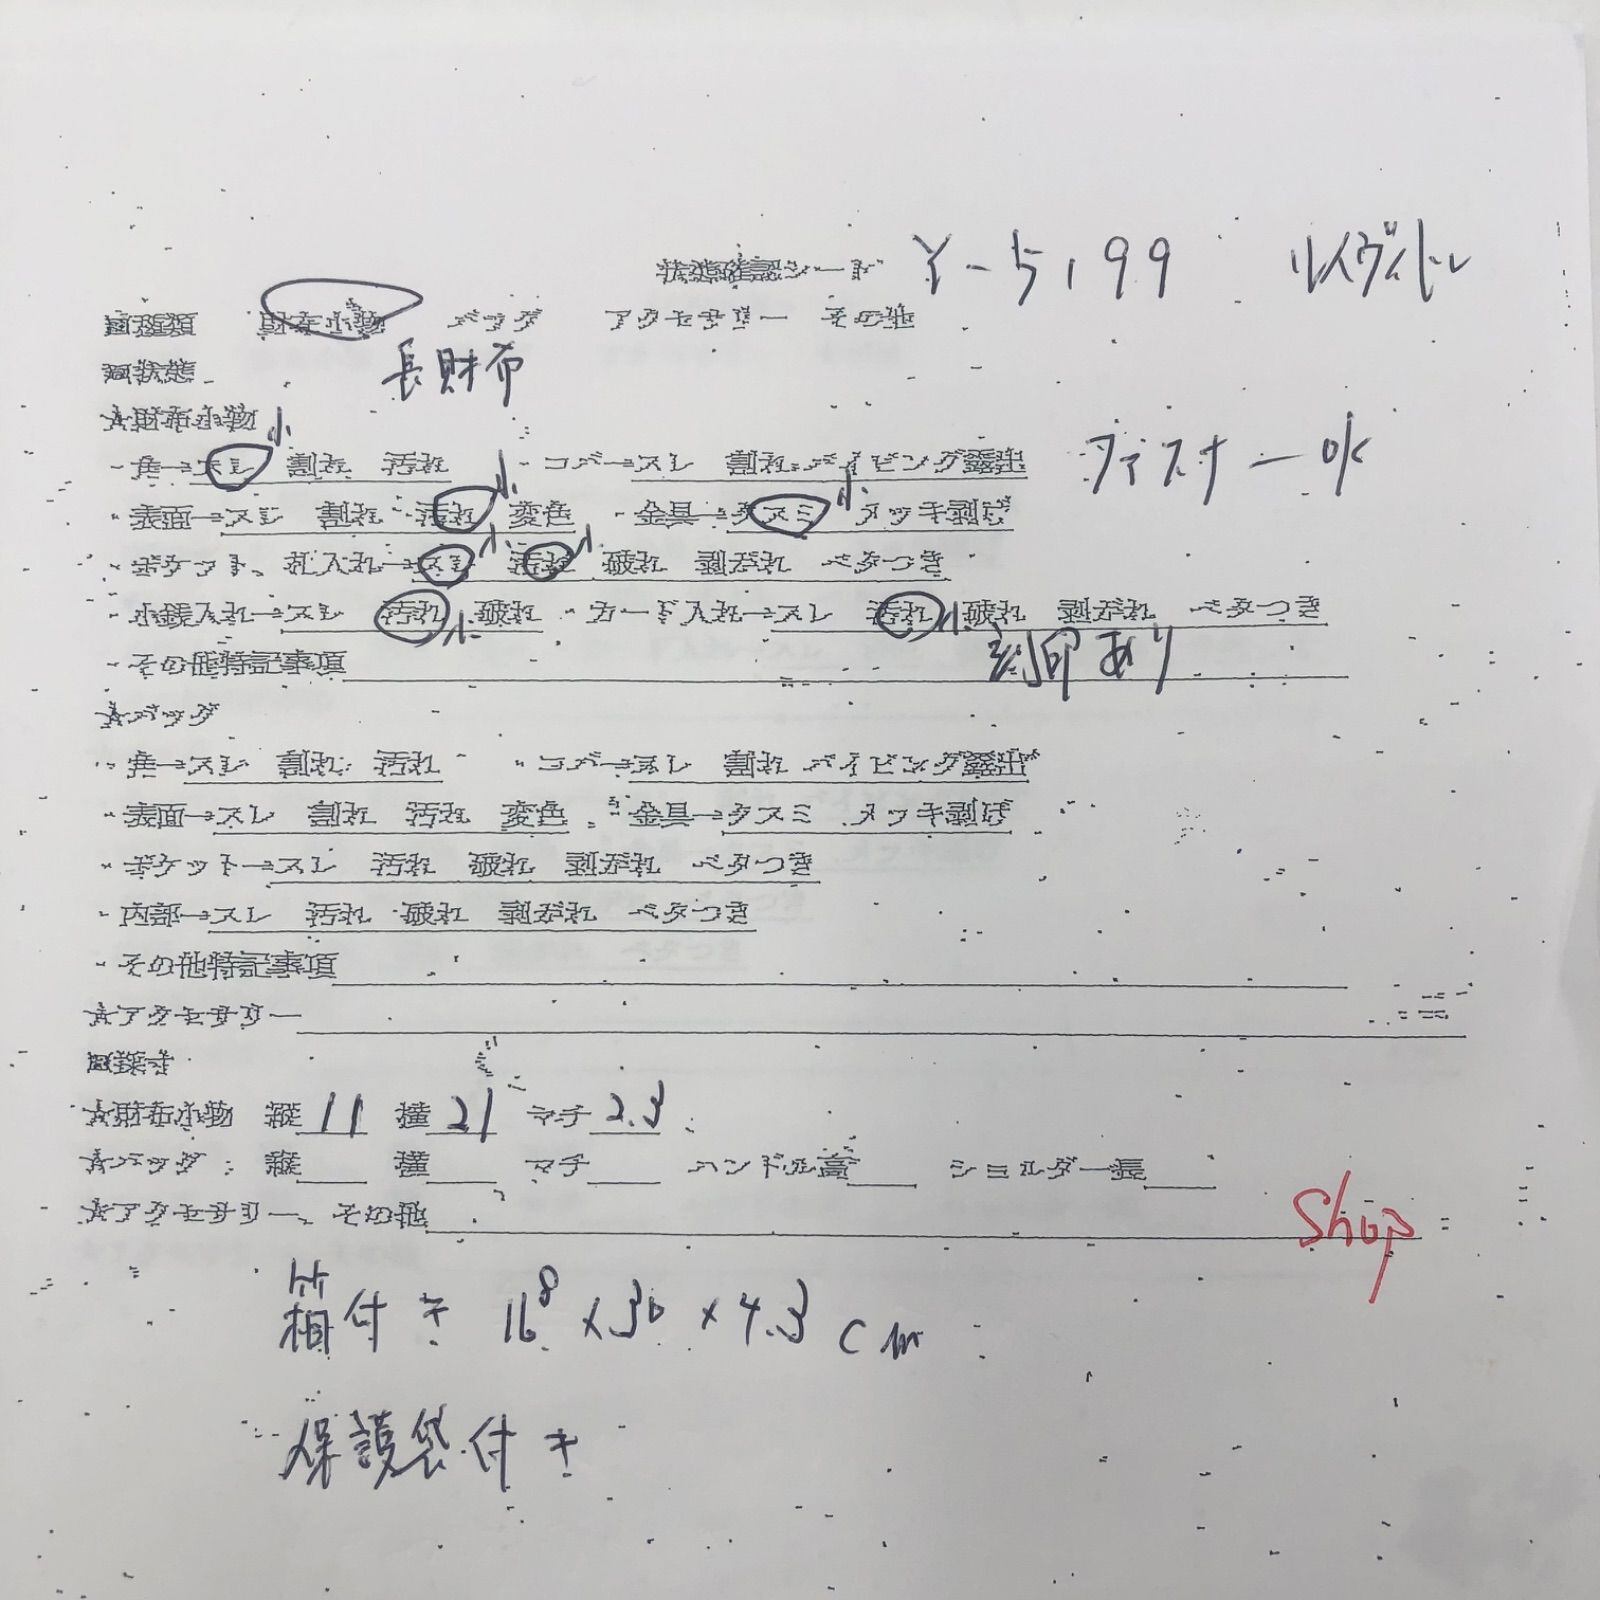 状態確認シート Y-5199 ルイヴィトン
□種類 財布小物 バッグ アクセサリー その他
□状態 長財布
☆財布小物
・角→スレ 小 割れ 汚れ ・コバ→スレ 割れ パイピング露出 ファスナーOK
・表面→スレ 割れ 汚れ 小 変色 ・金具→クスミ 小 メッキ剥げ
・ポケット、札入れ→スレ 小 汚れ 小 破れ 剥がれ ベタつき
・小銭入れ→スレ 汚れ 小 破れ ・カード入れ→スレ 汚れ 小 破れ 剥がれ ベタつき
・その他特記事項 刻印あり
☆バッグ
・角→スレ 割れ 汚れ ・コバ→スレ 割れ パイピング露出
・表面→スレ 割れ 汚れ 変色 ・金具→クスミ メッキ剥げ
・ポケット→スレ 汚れ 破れ 剥がれ ベタつき
・内部→スレ 汚れ 破れ 剥がれ ベタつき
・その他特記事項
☆アクセサリー
□採寸
☆財布小物 縦 11 横 21 マチ 2.3
☆バッグ 縦 横 マチ ハンドル高 ショルダー長
☆アクセサリー、その他 Shop
箱付き 16.8×30×4.3cm
保護袋付き